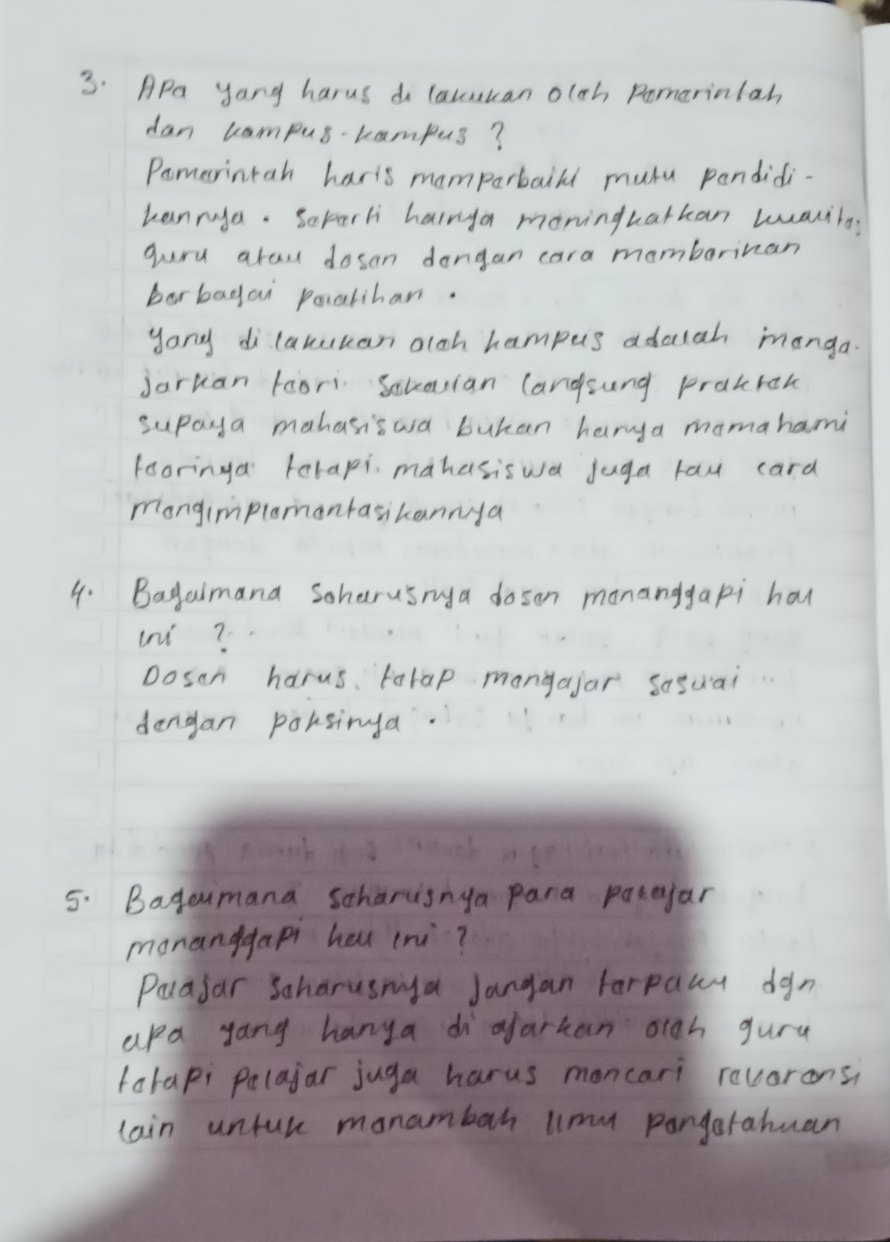 3. Apa yang harus di lakukan oleh Pemerintah
dan kampus-kampus ?
Pemerintah haris memperbaiki mutu pendidi-
kannya. Seperti halnya meningkatkan kualitas
guru atau dosen dengan cara memberikan
berbagai pelatihan.
yang di lakukan oleh kampus adalah menga-
jarkan teori sekalian langsung praktek
supaya mahasiswa bukan hanya memahami
teorinya tetapi mahasiswa juga tau cara
mengimplementasikannya
4. Bagaimana seharusnya dosen menanggapi hal
ini ?
Dosen harus tetap mengajar sesuai
dengan poksinya.
5. Bagaimana seharusnya para pelajar
menanggapi hal ini ?
Pelajar seharusnya jangan terpaku dgn
apa yang hanya di ajarkan oleh guru
tetapi pelajar juga harus mencari reverensi
lain untuk menambah ilmu pengetahuan